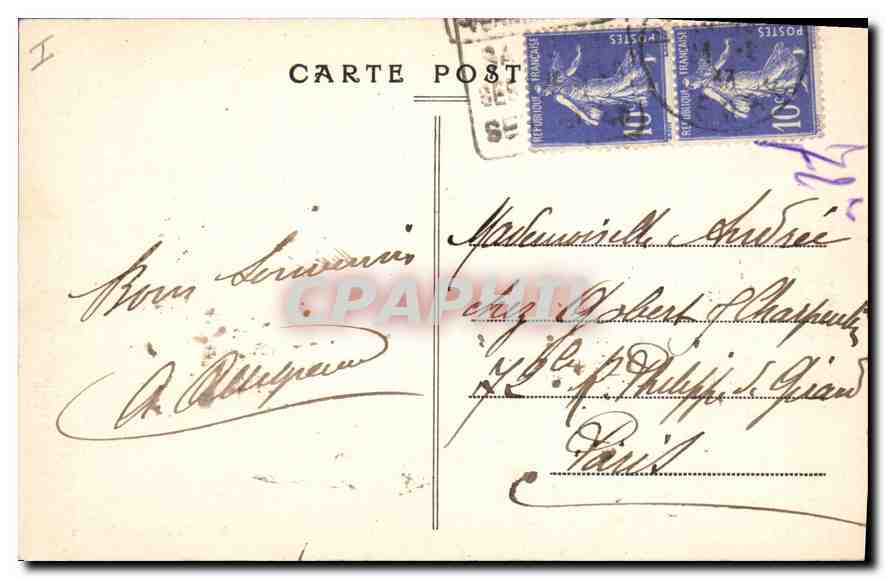 I
CARTE POST
REPUBLIQUE FRANÇAISE
POSTES
10c
REPUBLIQUE FRANÇAISE
POSTES
10c
27
Bons Souvenirs
A.
Mademoiselle Andrée
chez Robert Charpentier
72 bis R. Philippe de Girard
Paris
CPAPHIL